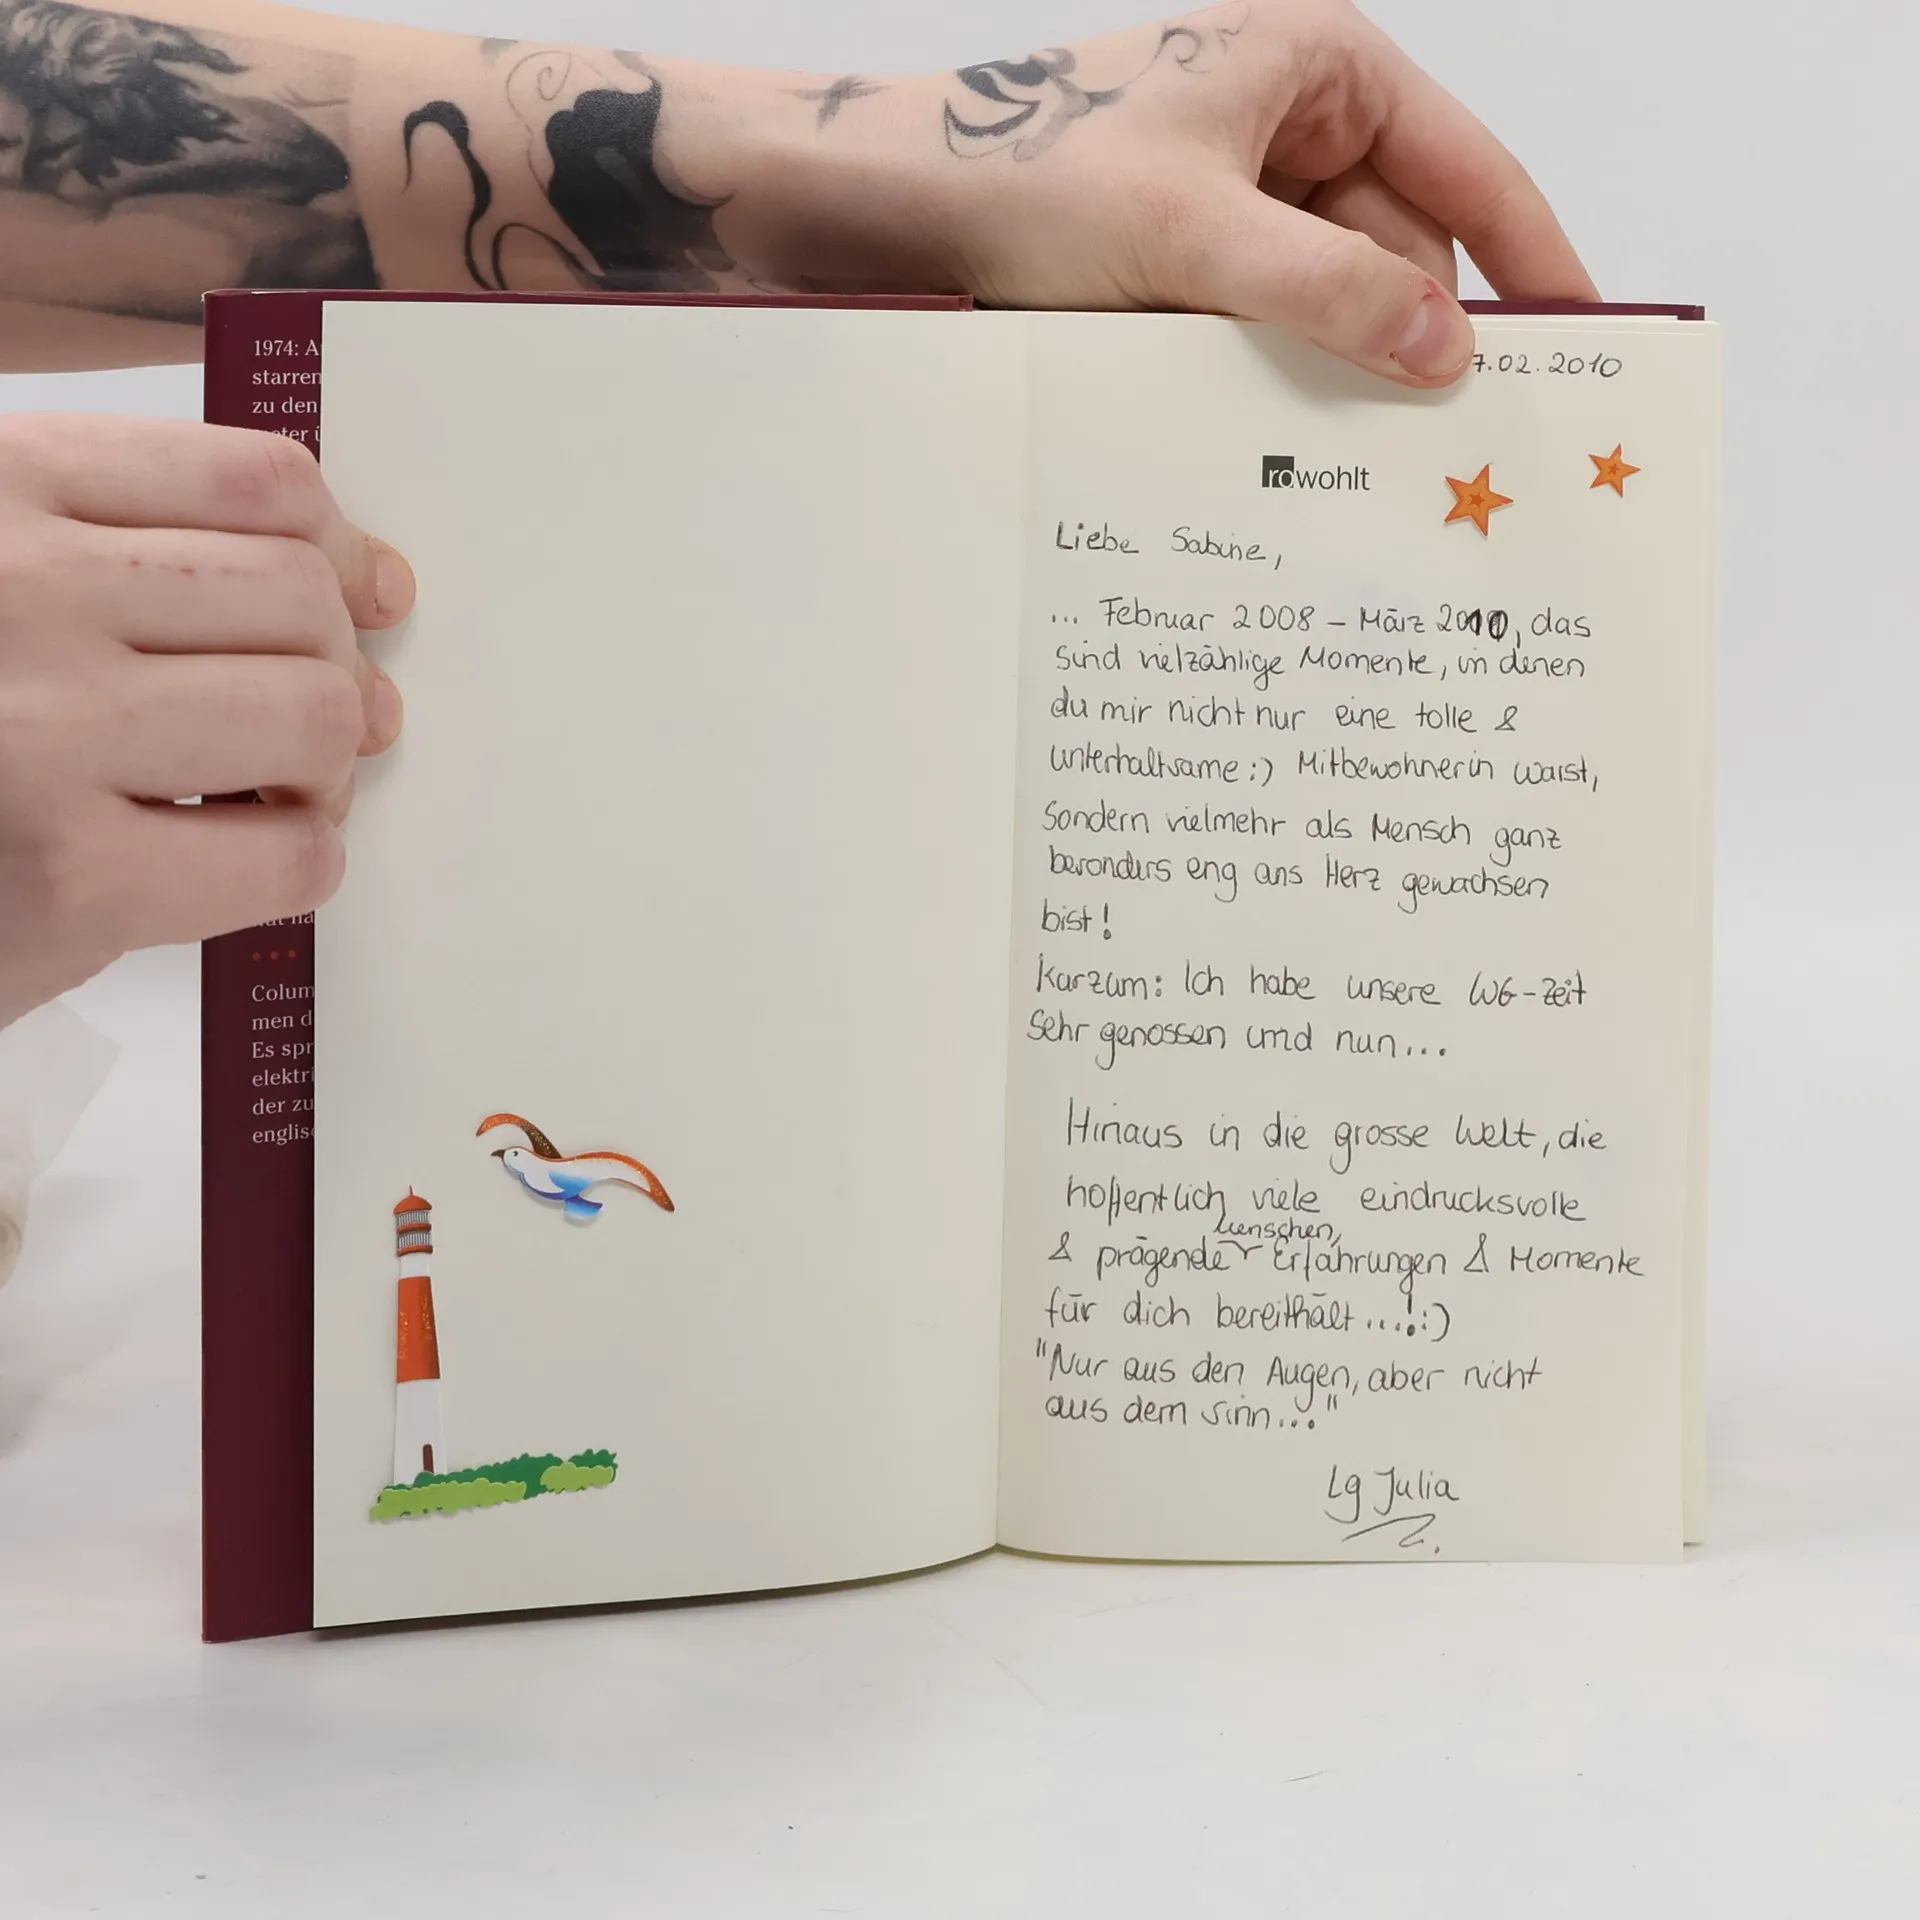 1974: A
starren
zu den
eter ü
Colum
men d
Es spr
elektri
der zu
englis
7.02.2010
rowohlt
Liebe Sabine,
... Februar 2008 – März 2010, das
sind vielzählige Momente, in denen
du mir nicht nur eine tolle &
unterhaltsame :) Mitbewohnerin warst,
sondern vielmehr als Mensch ganz
besonders eng ans Herz gewachsen
bist!
Kurzum: Ich habe unsere WG-Zeit
sehr genossen und nun...
Hinaus in die grosse Welt, die
hoffentlich viele eindrucksvolle
& prägende Menschen, Erfahrungen & Momente
für dich bereithält...!:)
"Nur aus den Augen, aber nicht
aus dem Sinn..."
Lg Julia